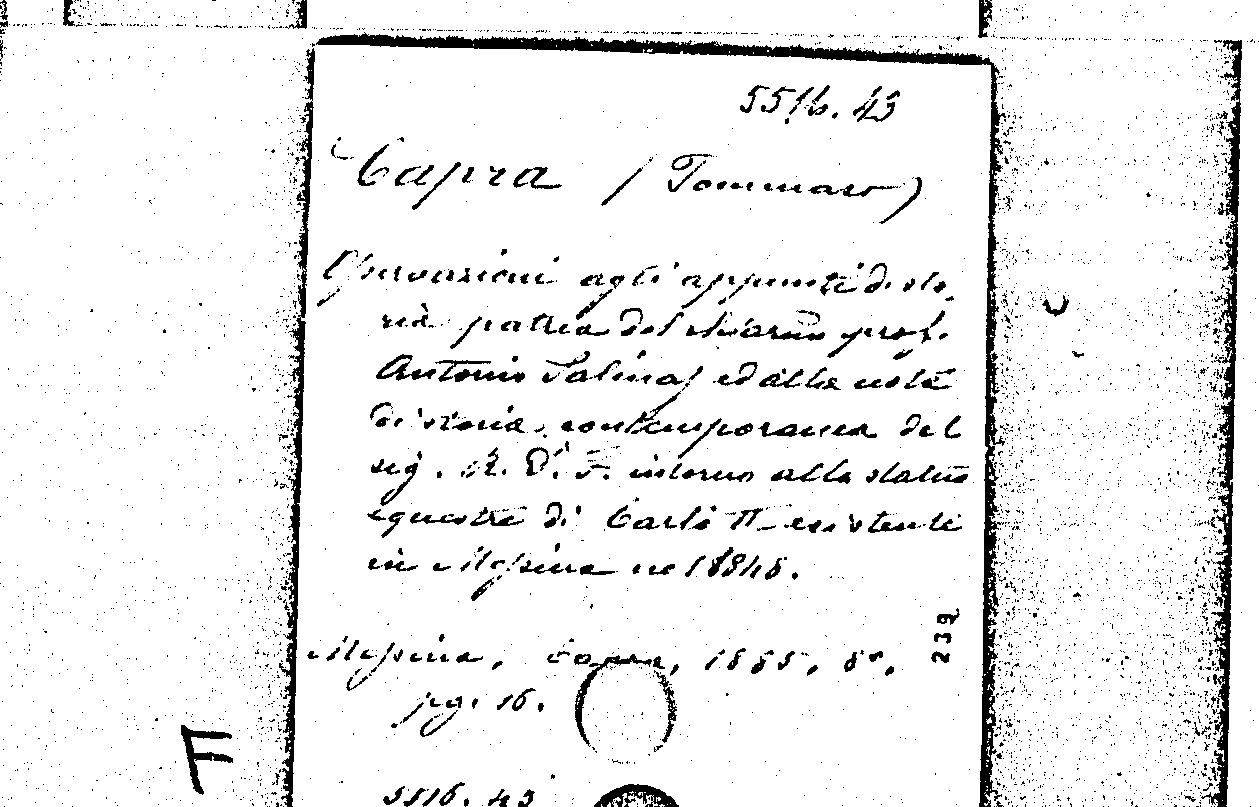 5516.43
Capra (Tommaso)
Osservazioni agli appunti di sto-
ria patria del chiarmo prof.
Antonio Salinas ed alle note
di storia contemporanea del
sig. R. D. F. intorno alla statua
equestre di Carlo II esistente
in Messina nel 1848.
239
Messina, Capra, 1885, 8º,
pg. 16.
F
5516.43